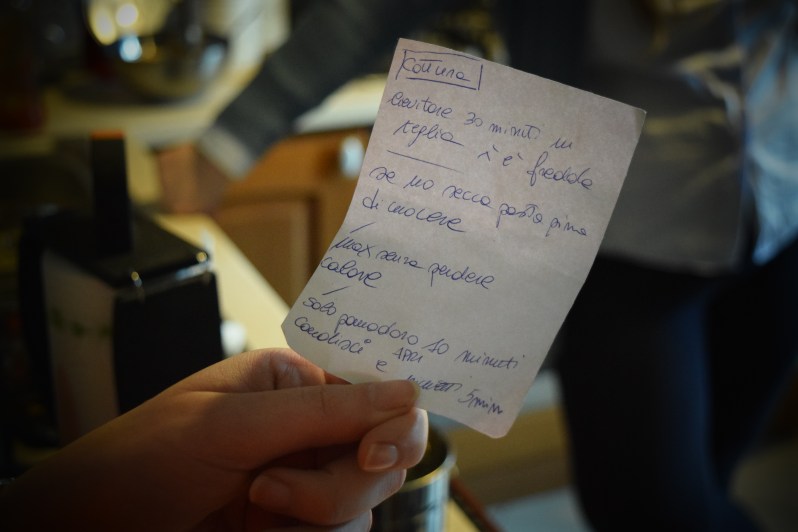 Cottura
lievitare 30 minuti in
teglia è fredda
se no secca pasta prima
di cuocere
max senza perdere
calore
solo pomodoro 10 minuti
condisci APRI e metti 5 min